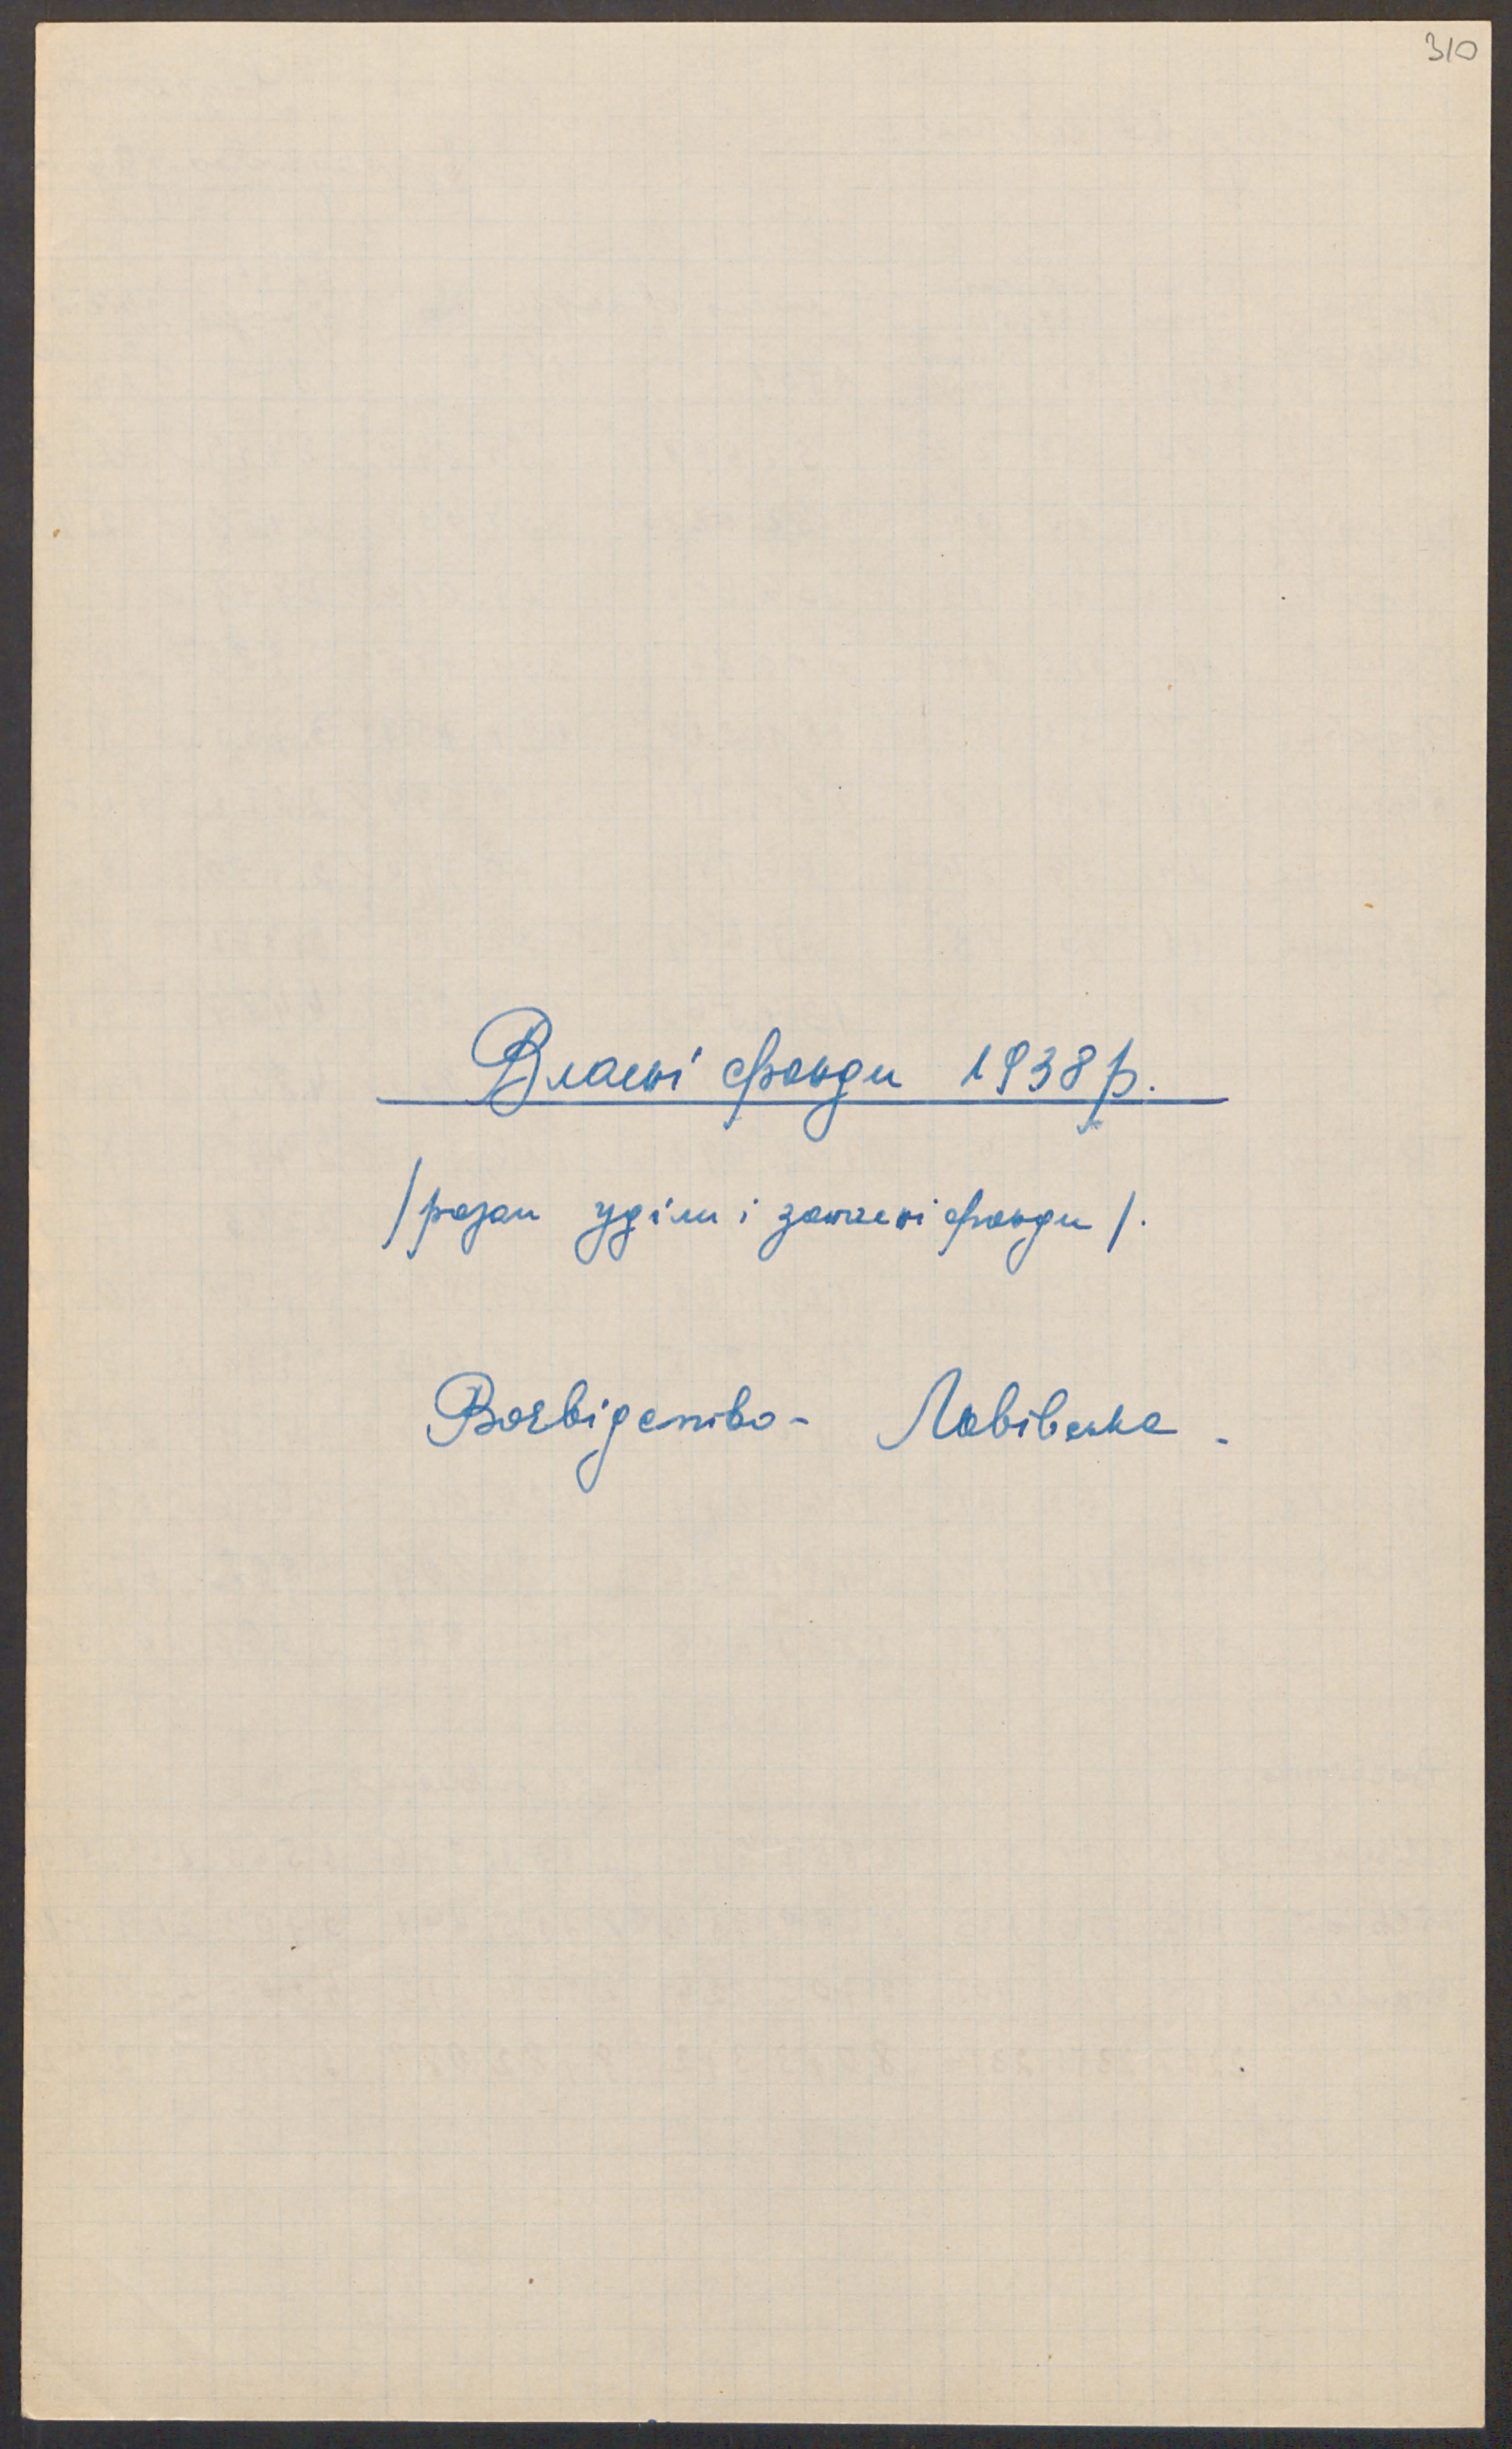 310
Власні фонди 1938 р.
/разом уділи і запасні фонди/.
Воєвідство - Львівське.